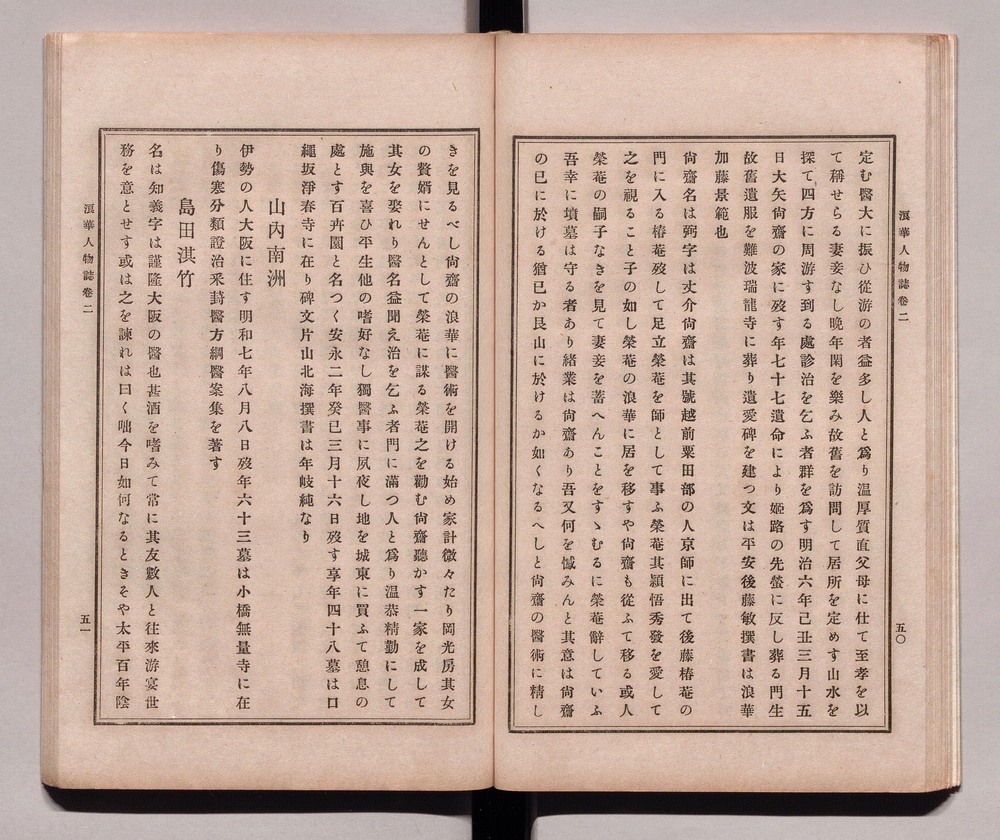 浪華人物誌卷二
五〇
定む醫大に振ひ從游の者益多し人と爲り温厚質直父母に仕て至孝を以
て稱せらる妻妾なし晩年閑を樂み故舊を訪問して居所を定めす山水を
探て四方に周游す到る處診治を乞ふ者群を爲す明治六年己丑三月十五
日大矢尙齋の家に歿す年七十七遺命により姬路の先塋に反し葬る門生
故舊遺服を難波瑞龍寺に葬り遺愛碑を建つ文は平安後藤敏撰書は浪華
加藤景範也
尙齋名は弼字は丈介尙齋は其號越前粟田部の人京師に出て後藤椿菴の
門に入る椿菴歿して足立榮菴を師として事ふ榮菴其穎悟秀發を愛して
之を視ること子の如し榮菴の浪華に居を移すや尙齋も從ふて移る或人
榮菴の嗣子なきを見て妻妾を蓄へんことをすゝむるに榮菴辭していふ
吾幸に墳墓は守る者あり緖業は尙齋あり吾又何を憾みんと其意は尙齋
の已に於ける猶已か艮山に於けるか如くなるへしと尙齋の醫術に精し
きを見るべし尙齋の浪華に醫術を開ける始め家計微々たり岡光房其女
の贅婿にせんとして榮菴に謀る榮菴之を勸む尙齋聽かす一家を成して
其女を娶れり醫名益聞え治を乞ふ者門に滿つ人と爲り温恭精勤にして
施與を喜ひ平生他の嗜好なし獨醫事に夙夜し地を城東に買ふて憩息の
處とす百卉園と名つく安永二年癸巳三月十六日歿す享年四十八墓は口
繩坂淨春寺に在り碑文片山北海撰書は年岐純なり
山內南洲
伊勢の人大阪に住す明和七年八月八日歿年六十三墓は小橋無量寺に在
り傷寒分類證治釆葑醫方綱醫案集を著す
島田淇竹
名は知義字は謹隆大阪の醫也甚酒を嗜みて常に其友數人と往來游宴世
務を意とせす或は之を諫れは曰く咄今日如何なるときそや太平百年陰
浪華人物誌卷二
五一